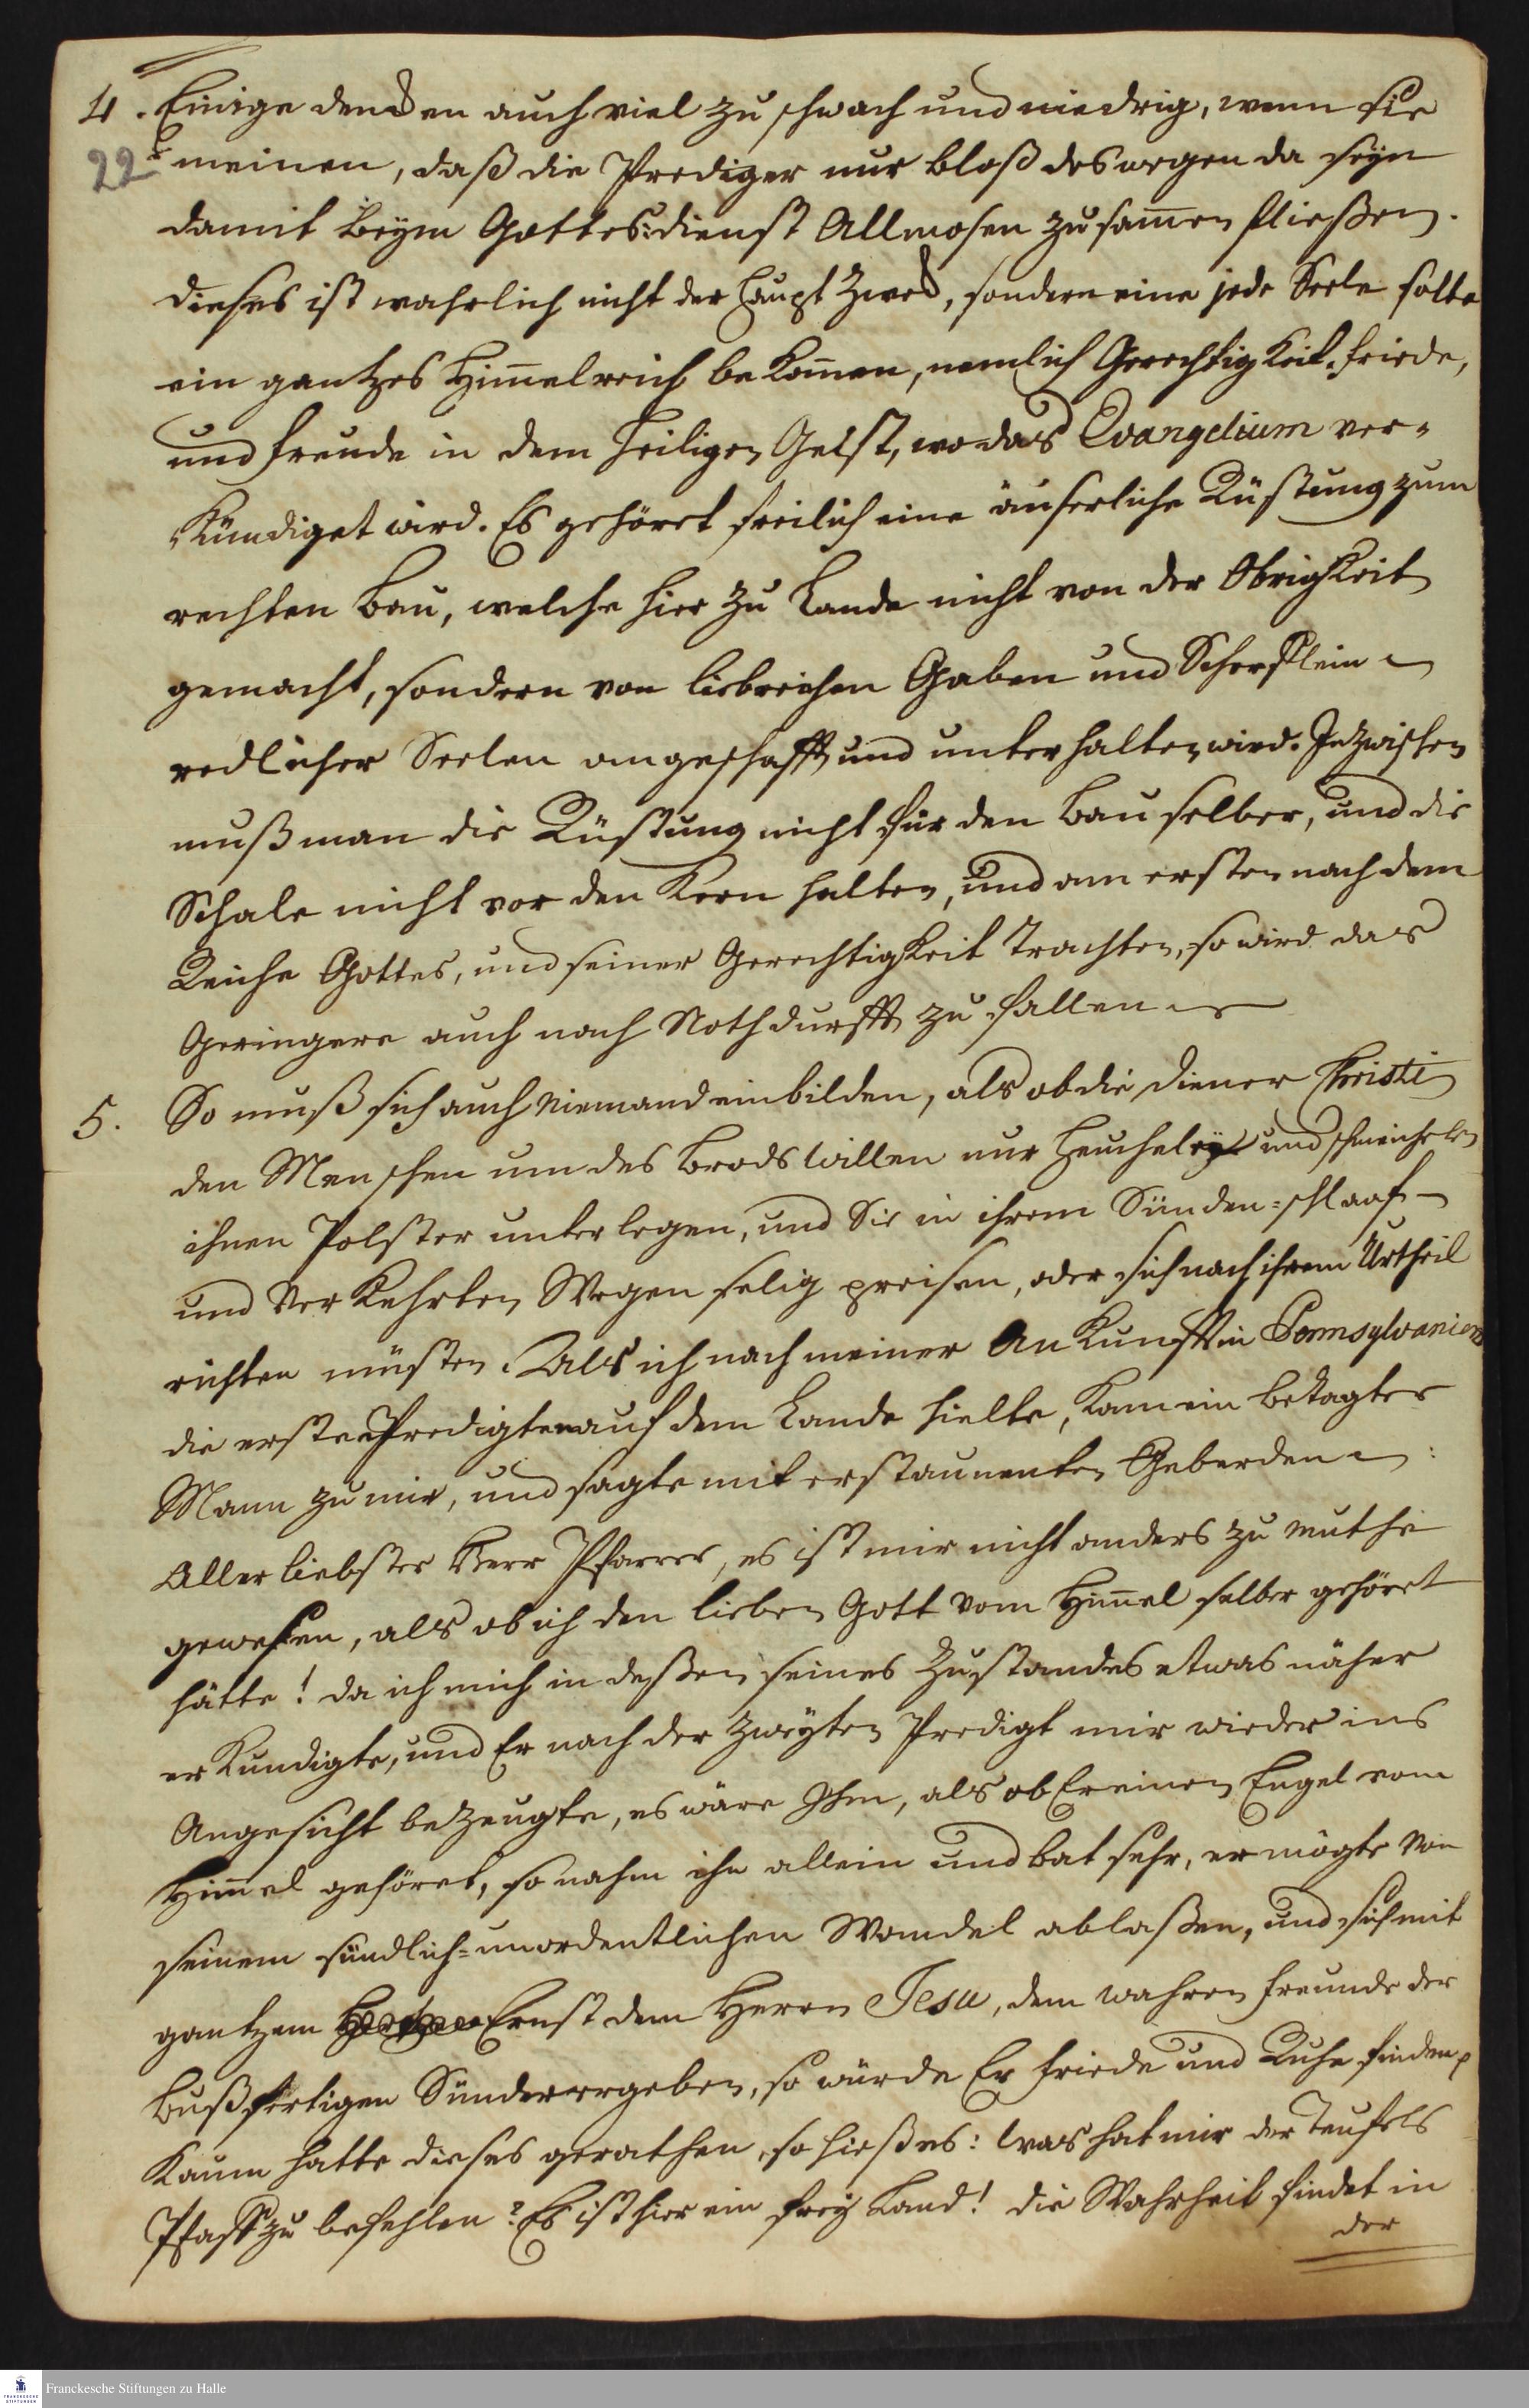 4. Einige dencken auch viel zu schwach und niedrig, wenn sie
22 meinen, daß die Prediger nur bloß deswegen da seyn
damit beym Gottes:dienst Allmosen zusam̄en fließen.
dieses ist wahrlich nicht der Haupt Zweck, sondern eine jede Seele solte
ein gantzes Him̄elreich bekom̄en, nemlich Gerechtigkeit. friede,
und freude in dem heiligen Geist, wo das Evangelium ver-
kündiget wird. Es gehöret freilich eine äuserliche Rüstung zum
rechten Bau, welche hier zu Lande nicht von der Obrigkeit
gemacht, sondern von liebreichen Gaben und Scherflein
redlicher Seelen angeschafft und unterhalten wird. Inzwischen
muß man die Rüstung nicht für den Bau selber, und die
Schale nicht vor den Kern halten, und am ersten nach dem
Reiche Gottes, und seiner Gerechtigkeit trachten, so wird das
Geringere auch nach Nothdurfft zu fallen
5. So muß sich auch niemand einbilden, als ob die diener Christi
den Menschen um des Brods willen nur heucheley und schmeichelen
ihnen Polster unterlegen, und Sie in ihrem Sünden=schlaaf
und verkehrten Wegen selig preisen, oder sich nach ihrem Urtheil
richten müsten. Als ich nach meiner Ankunfft in Pennsylvanien
die ersten Predigten auf dem Lande hielte, kam ein betagter
Mann zu mir, und sagte mit erstaunenten Geberden:
Allerliebster Herr Pfarrer, es ist mir nicht anders zu muthe
gewesen, als ob ich den lieben Gott vom Him̄el selber gehöret
hätte! da ich mich in deßen seines Zustandes etwas näher
erkundigte, und Er nach der zweyten Predigt mir wieder ins
Angesicht bezeugte, es wäre Ihm, als ob Er einen Engel vom
Him̄el gehöret, so nahm ihn allein und bat sehr, er mögte von
seinem sündlich=unordentlichen Wandel ablaßen, und sich mit
gantzem Ernst dem Herrn Jesu, dem wahren freunde der
bußfertigen Sünder ergeben, so würde Er friede und Ruhe finden,
Kaum hatte dieses gerathen, so hieß es: was hat mir der Teufels
Pfaff zu befehlen? Es ist hier ein frey Land! die Wahrheit findet in
der
Franckesche Stiftungen zu Halle